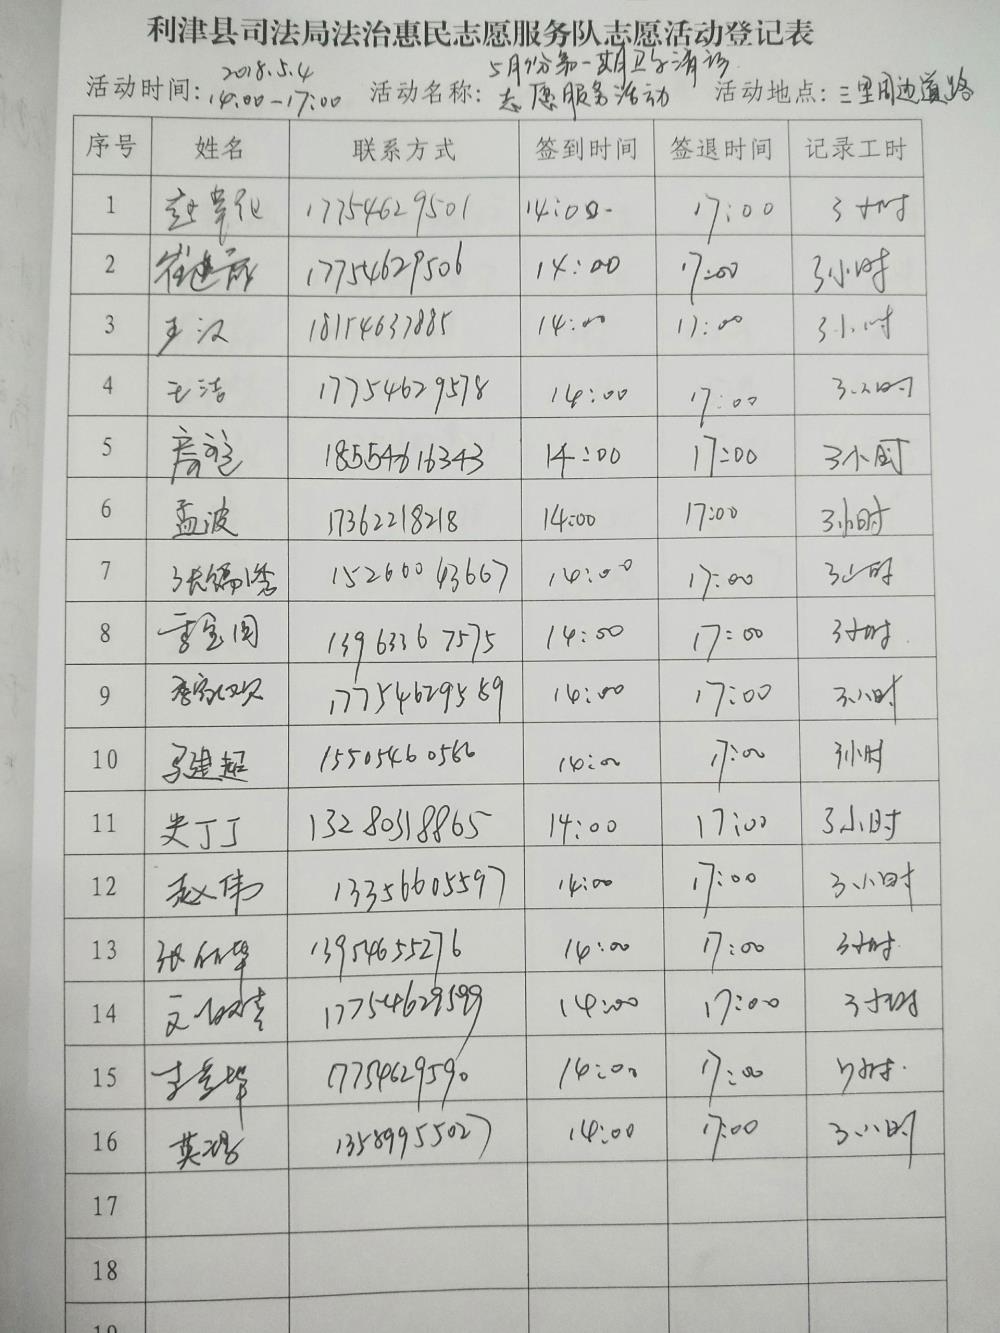 利津县司法局法治惠民志愿服务队志愿活动登记表
活动时间: 2018.5.4 14:00-17:00 活动名称: 5月份第一期卫生清洁志愿服务活动 活动地点: 三里周边道路
序号 姓名 联系方式 签到时间 签退时间 记录工时
1 17754629501 14:00 17:00 3小时
2 崔建 17754629506 14:00 17:00 3小时
3 王汉 18154637885 14:00 17:00 3小时
4 王洁 17754629578 14:00 17:00 3小时
5 18554616343 14:00 17:00 3小时
6 孟波 17362218218 14:00 17:00 3小时
7 张 15260043667 14:00 17:00 3小时
8 李宝国 13963367575 14:00 17:00 3小时
9 李 17754629589 14:00 17:00 3小时
10 马建超 15505460566 14:00 17:00 3小时
11 史丁丁 13280318865 14:00 17:00 3小时
12 赵伟 13356605597 14:00 17:00 3小时
13 张 13954655276 14:00 17:00 3小时
14 17754629599 14:00 17:00 3小时
15 李 17754629590 14:00 17:00 3小时
16 13589955027 14:00 17:00 3小时
17
18
19